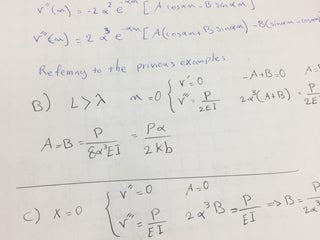 v''(x) = -2α² e^-αx [A cosαx - B sinαx]
v'''(x) = 2 α³ e^-αx [A(cosαx + sinαx) - B(sinαx - cosαx)
Referring to the privious examples
B) L > λ x=0 { v'=0 -A+B=0 A=
v'''= P/2EI 2α³(A+B)= P/2EI
A=B= P/8α³EI = Pα/2kb
C) X=0 { v''=0 A=0
v'''= P/EI 2α³B= P/EI => B= P/2α³